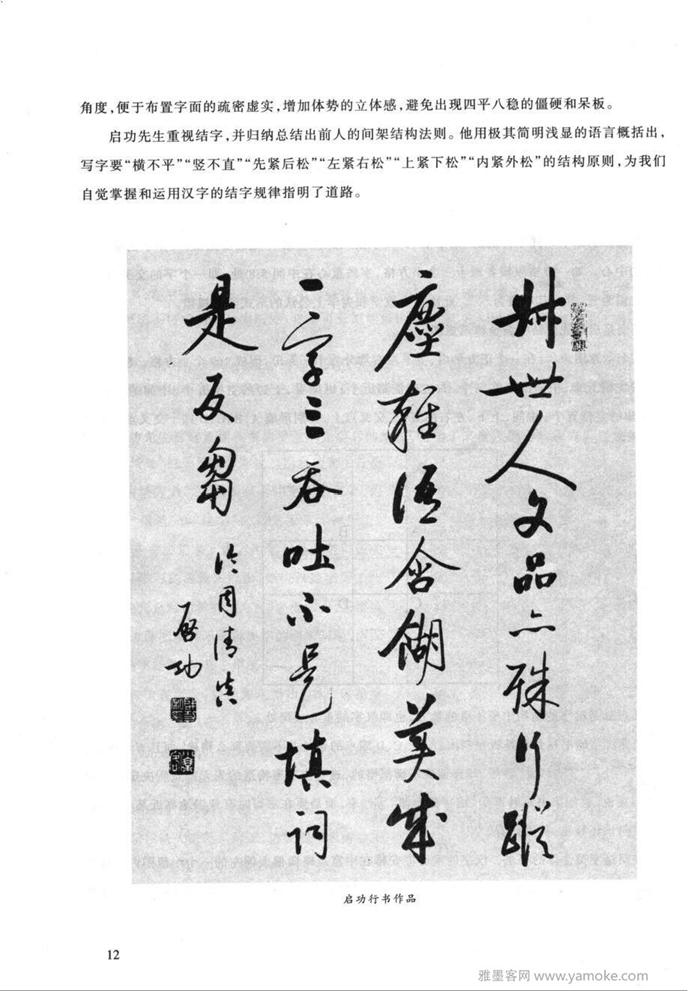 角度,便于布置字面的疏密虚实,增加体势的立体感,避免出现四平八稳的僵硬和呆板。
启功先生重视结字,并归纳总结出前人的间架结构法则。他用极其简明浅显的语言概括出,
写字要“横不平”“竖不直”“先紧后松”“左紧右松”“上紧下松”“内紧外松”的结构原则,为我们
自觉掌握和运用汉字的结字规律指明了道路。
叔世人文品亦殊行蹤
塵雜語含餬美成
一字三吞吐不是填詞
是反芻
論周清真
啟功
启功行书作品
12
雅墨客网 www.yamoke.com